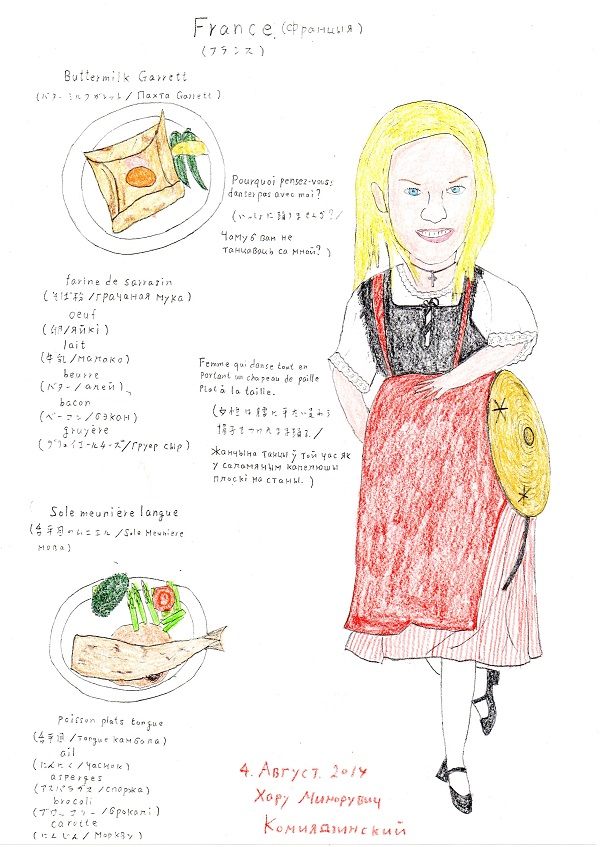 France (Франция)
(フランス)
Buttermilk Garrett
(バターミルクガレット/Пахта Garrett)
Pourquoi pensez-vous
danser pas avec moi?
(いっしょに踊りませんか?/
Чаму б вам не
танцаваць са мной?)
farine de sarrasin
(そば粉/грачаная мука)
oeuf
(卵/яйкі)
lait
(牛乳/малако)
beurre
(バター/алей)
bacon
(ベーコン/бэкан)
gruyère
(グリュイエールチーズ/Груер сыр)
Femme qui danse tout en
portant un chapeau de paille
plat à la taille.
(女性は腰に平たい
帽子をつけたまま踊る/
Жанчына танцы ў той час як
у саламяным капелюшы
плоскі на станы.)
Sole meunière langue
(舌平目のムニエル/Sole Meuniere
мова)
poisson plats tongue
(舌平目/Tongue камбала)
ail
(にんにく/часнок)
asperges
(アスパラガス/спаржа)
brocoli
(ブロッコリー/брокалі)
carotte
(にんじん/Моркву)
4. Август. 2014
Хару Минорувич
Комияджинский